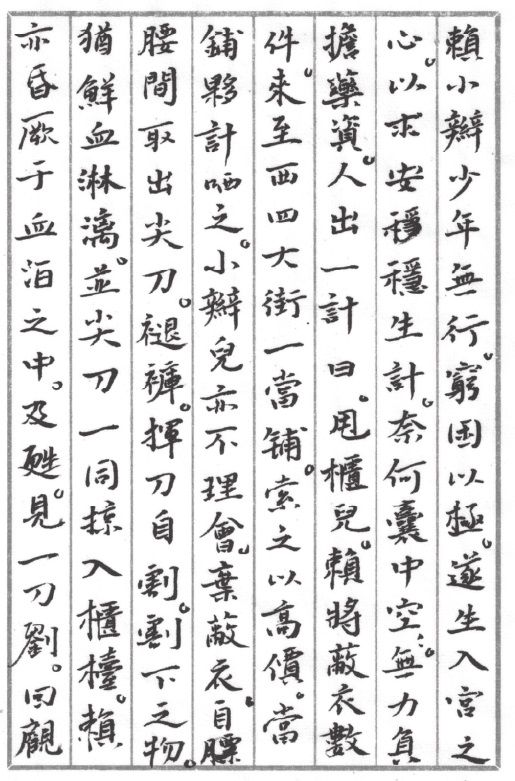 賴小辮少年無行。窮困以極。遂生入宮之
心。以求安穩穩生計。奈何囊中空。無力負
擔藥資。人出一計曰。甩櫃兒。賴將蔽衣數
件。來至西四大街一當鋪。索之以高價。當
鋪夥計哂之。小辮兒亦不理會。棄蔽衣。自腰
腰間取出尖刀。褪褲。揮刀自割。割下之物。
猶鮮血淋漓。並尖刀一同掠入櫃檯。賴
亦昏厥于血泊之中。及甦。見一刀劉。回觀